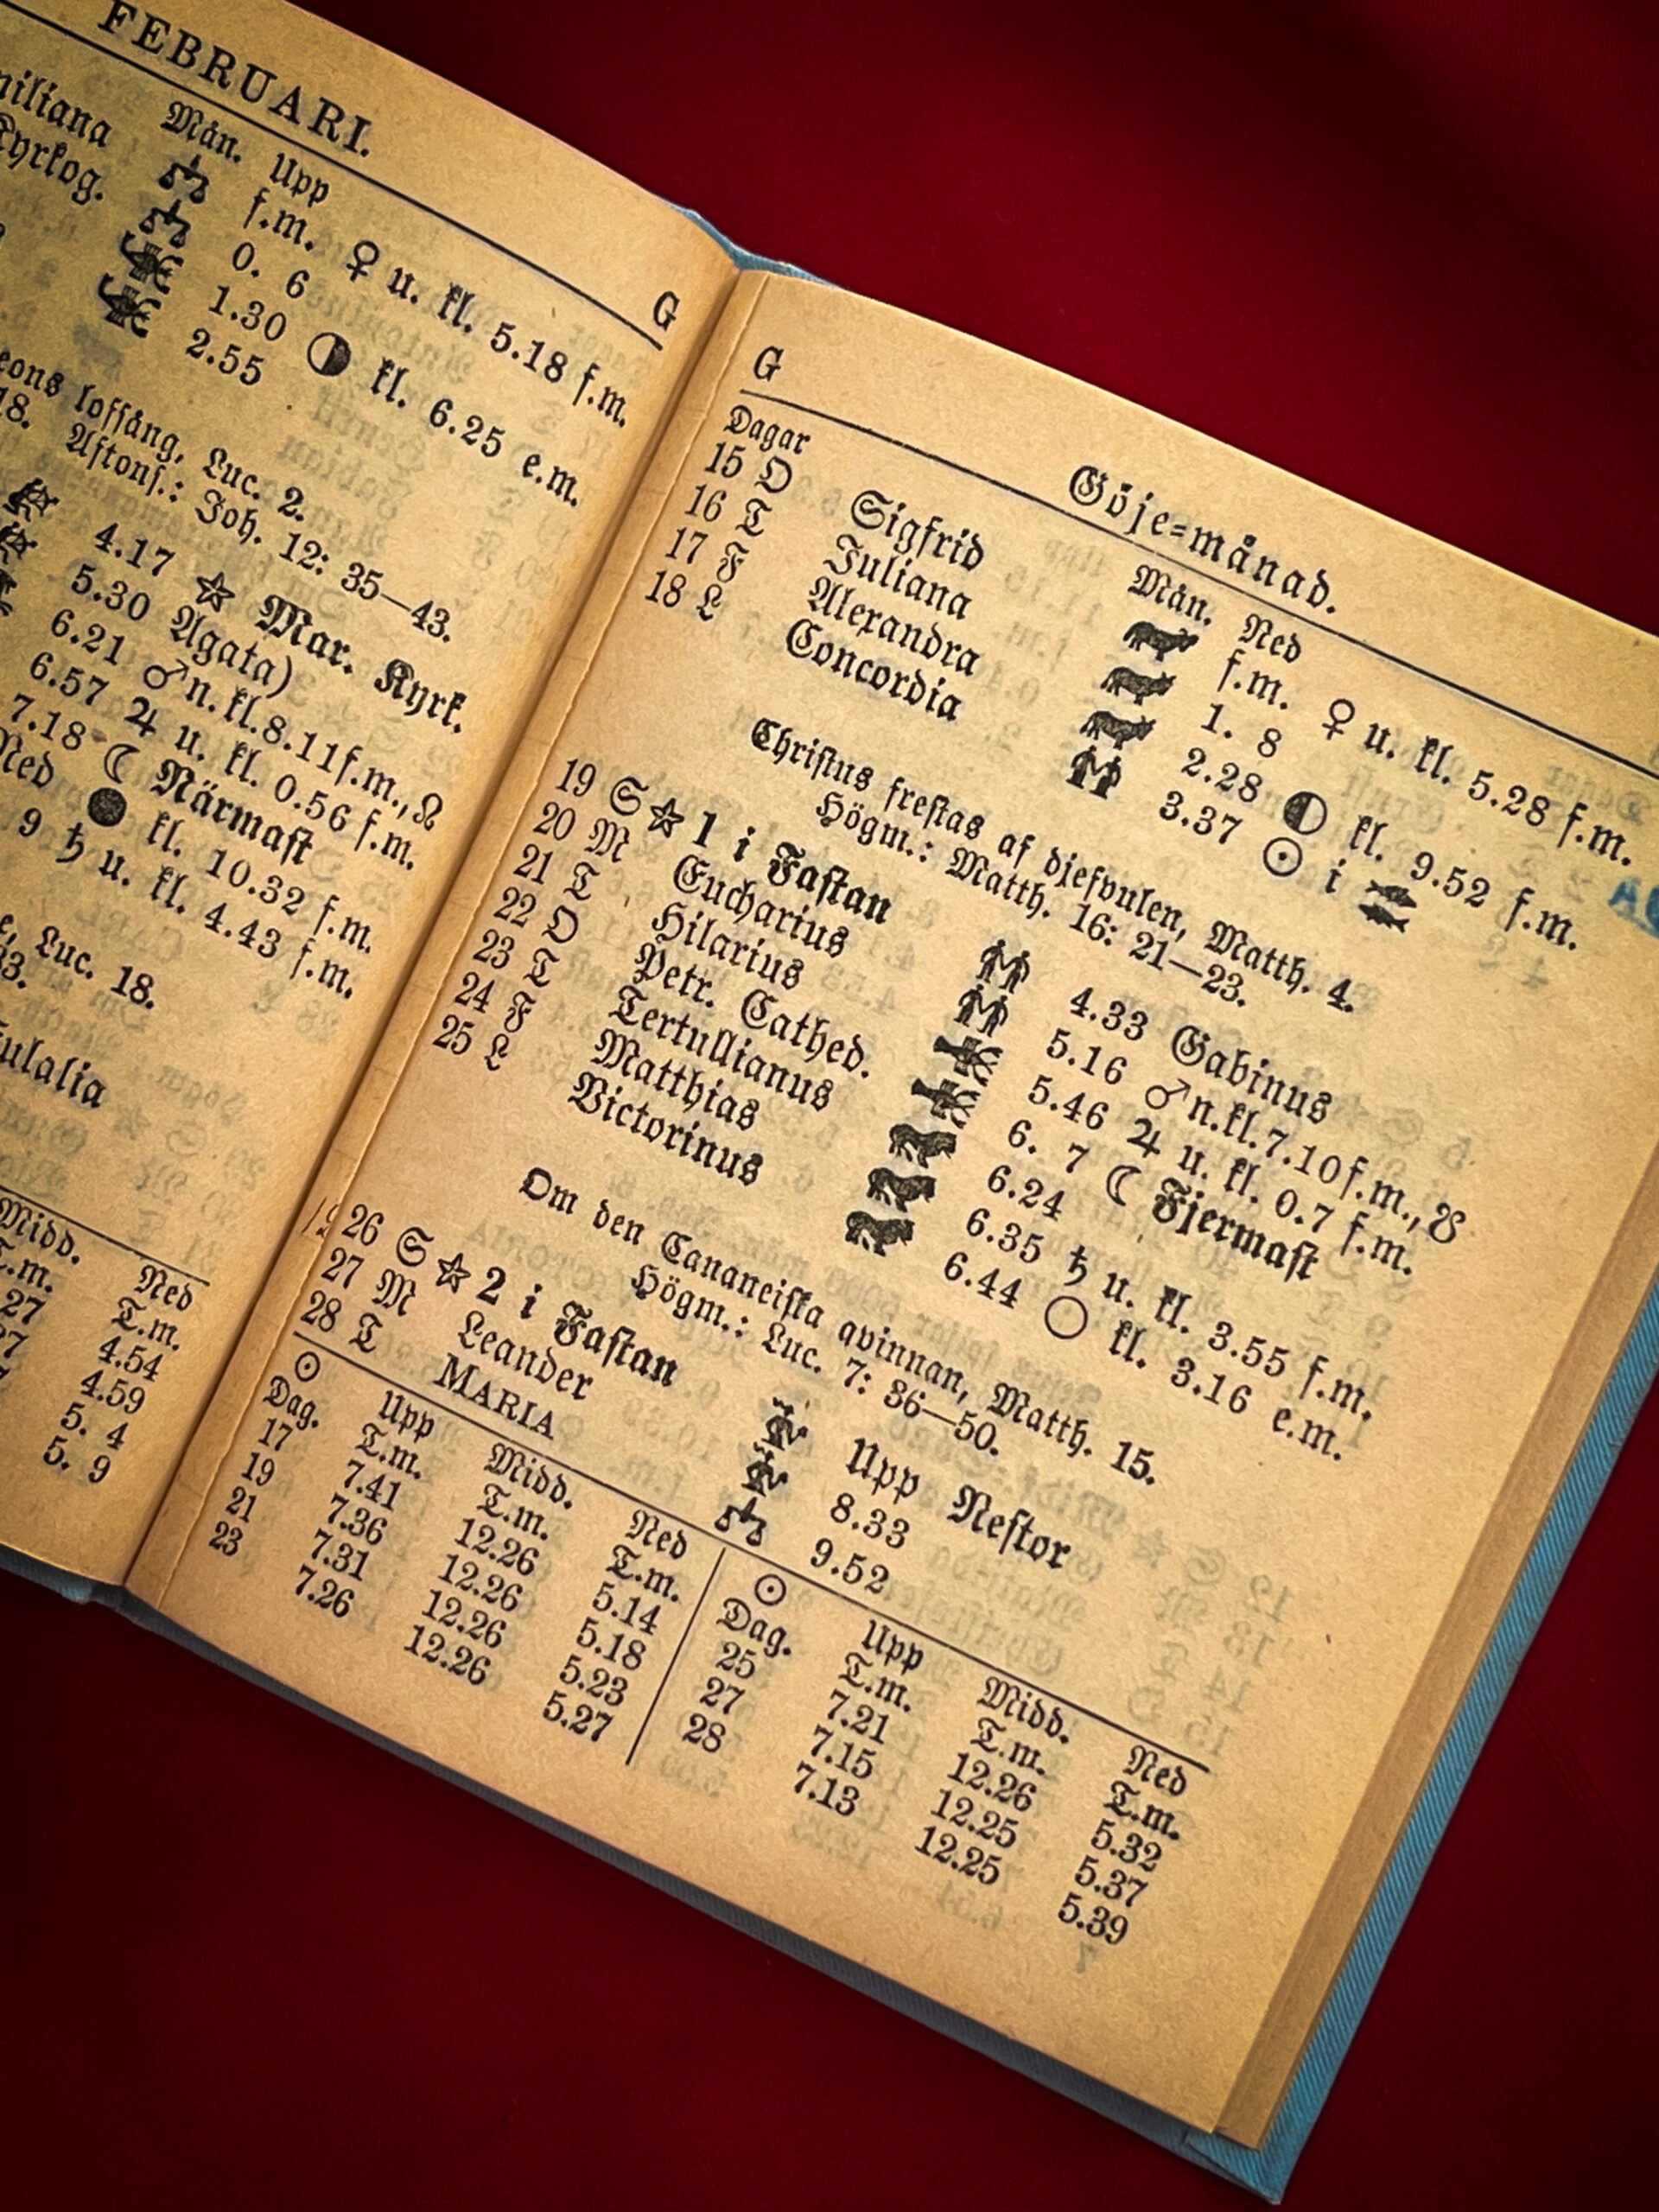 FEBRUARI.
G
Mån. Upp
f.m. ♀ u. kl. 5.18 f.m.
Tyrkog. 0. 6
1.30 kl. 6.25 e.m.
2.55
lofsång, Luc. 2.
18. Aftons.: Joh. 12: 35—43.
4.17 ☆ Mar. Kyrk.
5.30 Agata)
6.21 ♂ n. kl. 8.11 f.m., ☊
6.57 ♃ u. kl. 0.56 f.m.
7.18 ☾ Närmast
Ned ● kl. 10.32 f.m.
9 ♄ u. kl. 4.43 f.m.
Luc. 18.
Midd. Ned
T.m.
4.54
4.59
5. 4
5. 9
G Göje-månad.
Dagar Mån. Ned
15 O Sigfrid f.m. ♀ u. kl. 5.28 f.m.
16 T Juliana 1. 8
17 F Alexandra 2.28 ◐ kl. 9.52 f.m.
18 L Concordia 3.37 ☉ i
Christus frestas af djefvulen, Matth. 4.
Högm.: Matth. 16: 21—23.
19 S ☆ 1 i Fastan 4.33 Gabinus
20 M Eucharius 5.16 ♂ n. kl. 7.10 f.m., ☋
21 T Hilarius 5.46 ♃ u. kl. 0.7 f.m.
22 O Petr. Cathed. 6. 7 ☾ Fjermast
23 T Tertullianus 6.24
24 F Matthias 6.35 ♄ u. kl. 3.55 f.m.
25 L Victorinus 6.44 ○ kl. 3.16 e.m.
Om den Cananeiska qvinnan, Matth. 15.
Högm.: Luc. 7: 36—50.
26 S ☆ 2 i Fastan Upp Nestor
27 M Leander 8.33
28 T MARIA 9.52
☉ Upp Midd. Ned
Dag. T.m. T.m. T.m.
17 7.41 12.26 5.14
19 7.36 12.26 5.18
21 7.31 12.26 5.23
23 7.26 12.26 5.27
☉ Upp Midd. Ned
Dag. T.m. T.m. T.m.
25 7.21 12.26 5.32
27 7.15 12.25 5.37
28 7.13 12.25 5.39